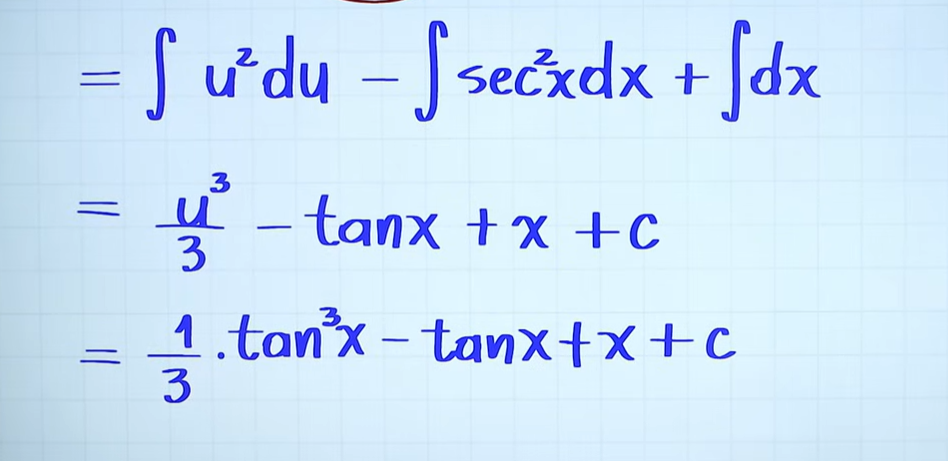 = ∫ u²du − ∫ sec²xdx + ∫dx
= u³/3 − tanx + x + c
= 1/3 . tan³x − tanx + x + c